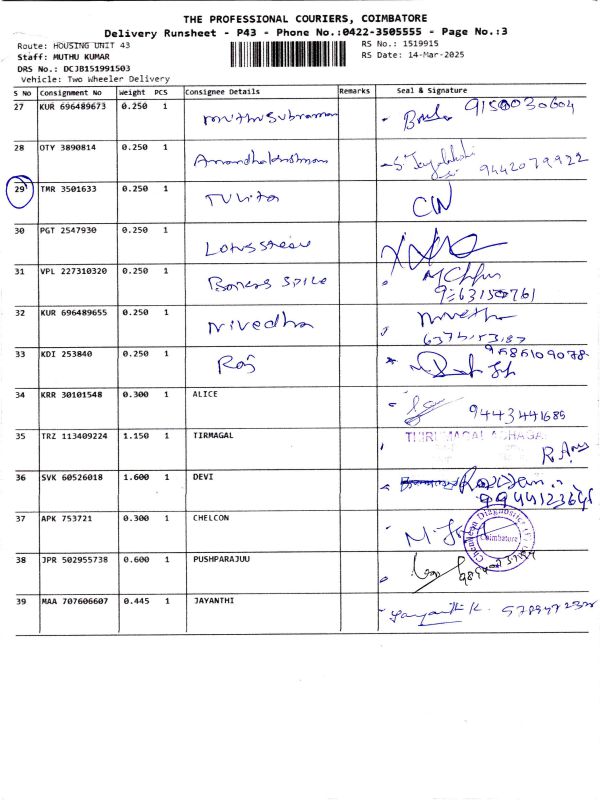 THE PROFESSIONAL COURIERS, COIMBATORE
Delivery Runsheet - P43 - Phone No.:0422-3505555 - Page No.:3
Route: HOUSING UNIT 43
RS No.: 1519915
Staff: MUTHU KUMAR
RS Date: 14-Mar-2025
DRS No.: DCJB151991503
Vehicle: Two Wheeler Delivery
S No Consignment No Weight PCS Consignee Details Remarks Seal & Signature
27 KUR 696489673 0.250 1 muthusubraman
28 OTY 3890814 0.250 1 9442079922
29 TMR 3501633 0.250 1
30 PGT 2547930 0.250 1
31 VPL 227310320 0.250 1
32 KUR 696489655 0.250 1 Nivedha
33 KDI 253840 0.250 1 Raj 9585109078
34 KRR 30101548 0.300 1 ALICE 9443441685
35 TRZ 113409224 1.150 1 TIRMAGAL
36 SVK 60526018 1.600 1 DEVI
37 APK 753721 0.300 1 CHELCON
Coimbatore
38 JPR 502955738 0.600 1 PUSHPARAJUU
39 MAA 707606607 0.445 1 JAYANTHI Jayanthi K.